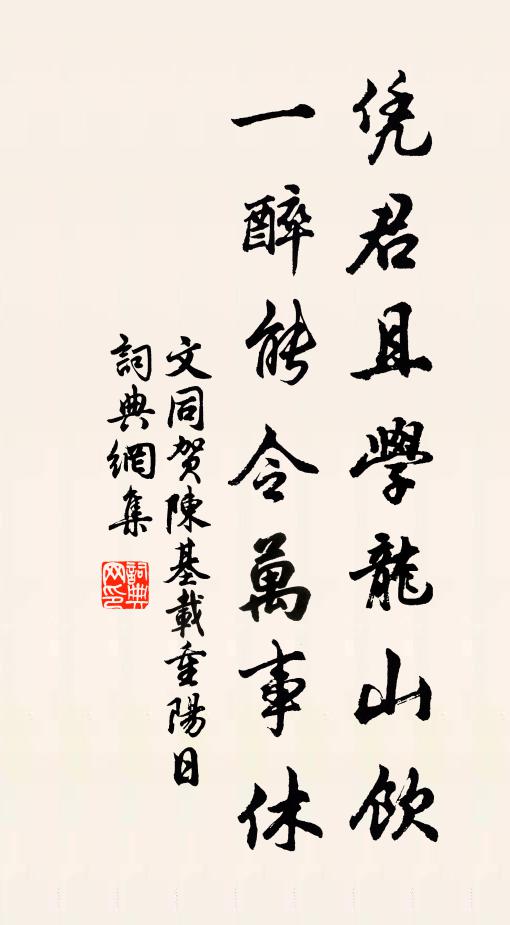 凭君且學龍山飲
一醉能令萬事休
文同賀陳基載重陽日
詞典網集
詞典网印